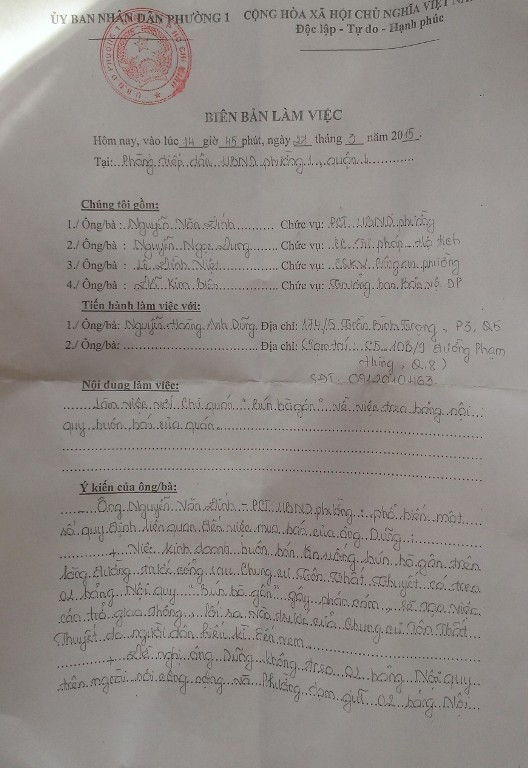 ỦY BAN NHÂN DÂN PHƯỜNG 1 CỘNG HÒA XÃ HỘI CHỦ NGHĨA VIỆT NAM
Độc lập - Tự do - Hạnh phúc
BIÊN BẢN LÀM VIỆC
Hôm nay, vào lúc 14 giờ 45 phút, ngày 27 tháng 3 năm 2015.
Tại: Phòng tiếp dân UBND phường 1, quận
Chúng tôi gồm:
1./ Ông/bà : Nguyễn Văn Đính Chức vụ: PCT UBND phường
2./ Ông/bà : Nguyễn Ngọc Dung Chức vụ: CC Tư pháp hộ tịch
3./ Ông/bà : Lê Đình Việt Chức vụ: CSKV Công an phường
4./ Ông/bà : Kim Chức vụ: Trưởng ban Bảo vệ DP
Tiến hành làm việc với:
1./ Ông/bà: Nguyễn Hoàng Anh Dũng. Địa chỉ: 174/5 Trần Bình Trọng, P3, Q5
2./ Ông/bà: Địa chỉ: (Tạm trú: C5 10B/9 đường Phạm
Hùng, Q.8)
SĐT 0912010463
Nội dung làm việc:
Làm việc với chủ quán "Bún bò gân" về việc treo bảng nội
quy buôn bán của quán
Ý kiến của ông/bà:
Ông Nguyễn Văn Đính - PCT UBND phường : phổ biến một
số quy định liên quan đến việc mua bán của ông Dũng :
+ Việc kinh doanh buôn bán ăn uống bún bò gân trên
lòng đường trước cổng sau Chung cư Tôn Thất Thuyết có treo
02 bảng Nội quy "Bún bò gân" gây phản cảm, sẽ tạo việc
cản trở giao thông, lối ra vào của Chung cư Tôn Thất
Thuyết do người dân hiếu kì đến xem.
+ Đề nghị ông Dũng không treo 02 bảng Nội quy
trên ngoài nơi công cộng và Phường tạm giữ 02 bảng Nội